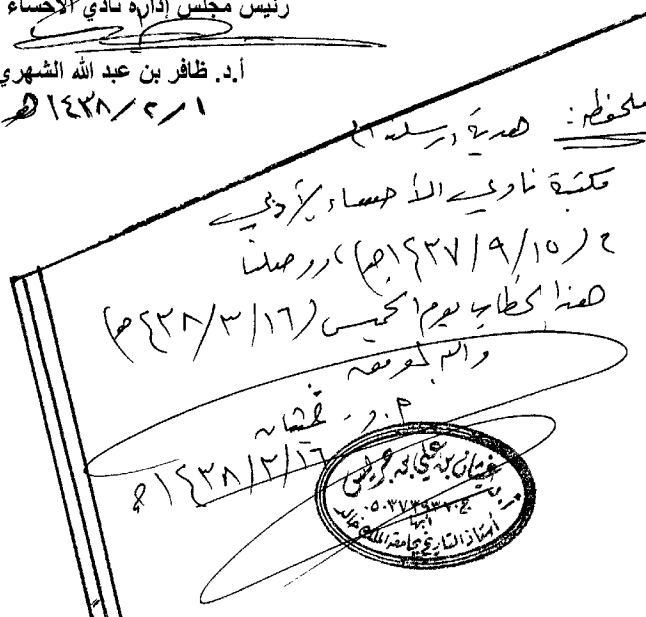 رئيس مجلس إدارة نادي الأحساء
أ.د. ظافر بن عبد الله الشهري
١٤٣٨/٢/١ هـ
ملحوظة: هدية أرسلت إلى
مكتبة نادي الأحساء الأدبي
في (١٤٣٧/٩/١٥هـ)، ووصلنا
هذا الخطاب يوم الخميس (١٤٣٨/٣/١٦هـ)
والله الموفق
أ.د. غيثان
١٤٣٨/٣/١٦هـ
غيثان بن علي بن جريس
أبها
أستاذ التاريخ بجامعة الملك خالد